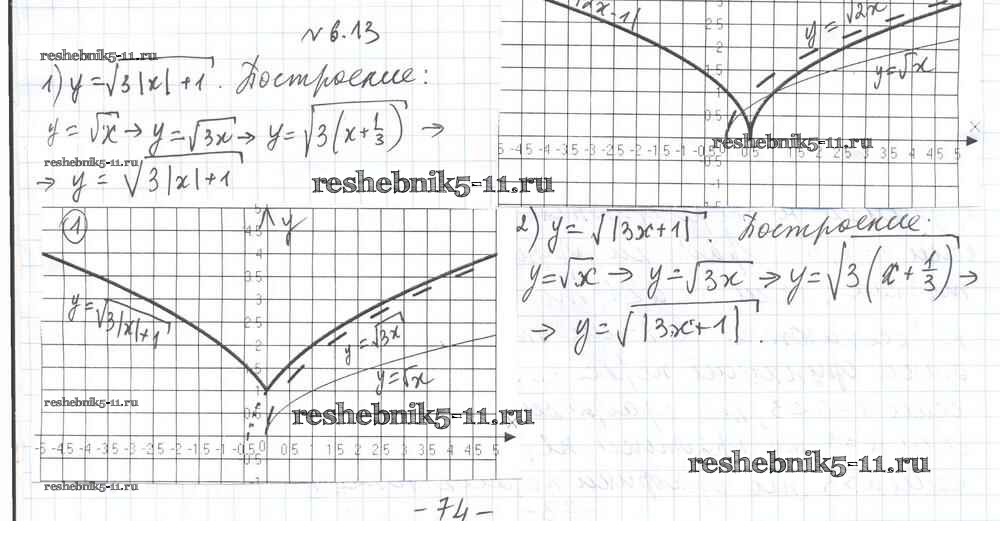 № 6.13
reshebnik5-11.ru
1) y = √3|x|+1. Построение:
y = √x → y = √3x → y = √3(x+1/3) →
reshebnik5-11.ru
→ y = √3|x|+1
reshebnik5-11.ru
1
y
5
4
3.5
3
2.5
2
y = √3|x|+1
y = √3x
y = √x
reshebnik5-11.ru
reshebnik5-11.ru
-5 -4.5 -4 -3.5 -3 -2.5 -2 -1.5 -1 -0.5 0 0.5 1 1.5 2 2.5 3 3.5 4 4.5 5
reshebnik5-11.ru
- 74 -
|2x-1|
y = √2x
y = √x
x
reshebnik5-11.ru
-4.5 -4 -3.5 -3 -2.5 -2 -1.5 -1 -0.5 0 0.5 1 1.5 2 2.5 3 3.5 4 4.5 5
2) y = √|3x+1|. Построение:
y = √x → y = √3x → y = √3(x+1/3) →
→ y = √|3x+1|.
reshebnik5-11.ru